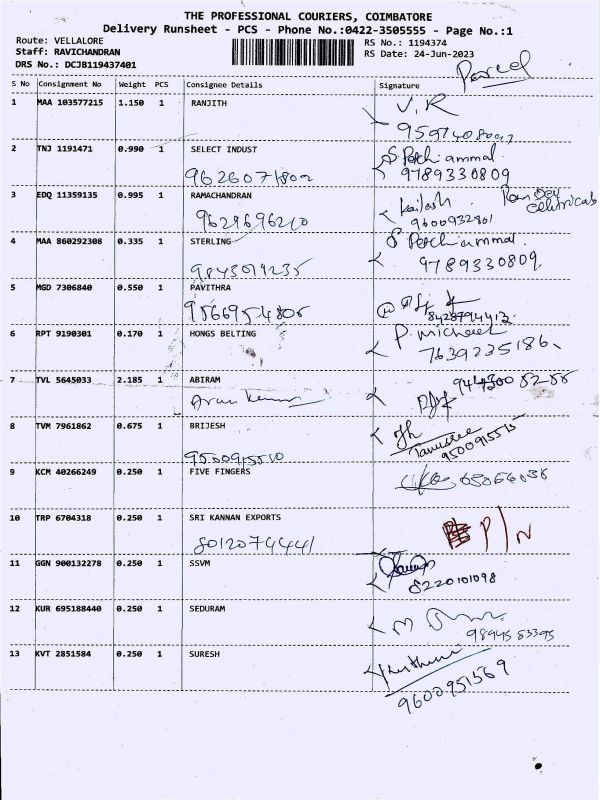 THE PROFESSIONAL COURIERS, COIMBATORE
Delivery Runsheet - PCS - Phone No.:0422-3505555 - Page No.:1
Route: VELLALORE
Staff: RAVICHANDRAN
DRS No.: DCJB119437401
RS No.: 1194374
RS Date: 24-Jun-2023
Parcel
S No Consignment No Weight PCS Consignee Details Signature
1 MAA 103577215 1.150 1 RANJITH V.R
2 TNJ 1191471 0.990 1 SELECT INDUST
9789330809
3 EDQ 11359135 0.995 1 RAMACHANDRAN Kailash
9629696210 9600932901
4 MAA 860292308 0.335 1 STERLING
9843019235 9789330809
5 MGD 7306840 0.550 1 PAVITHRA
9566954806
6 RPT 9190301 0.170 1 HONGS BELTING P. micheal
7639235186
7 TVL 5645033 2.185 1 ABIRAM
Arun Kumar
8 TVM 7961862 0.675 1 BRIJESH
9500915515
9 KCM 40266249 0.250 1 FIVE FINGERS
10 TRP 6704318 0.250 1 SRI KANNAN EXPORTS P/N
8012074441
11 GGN 900132278 0.250 1 SSVM
8220101098
12 KUR 695188440 0.250 1 SEDURAM
9894553395
13 KVT 2851584 0.250 1 SURESH
9600951569